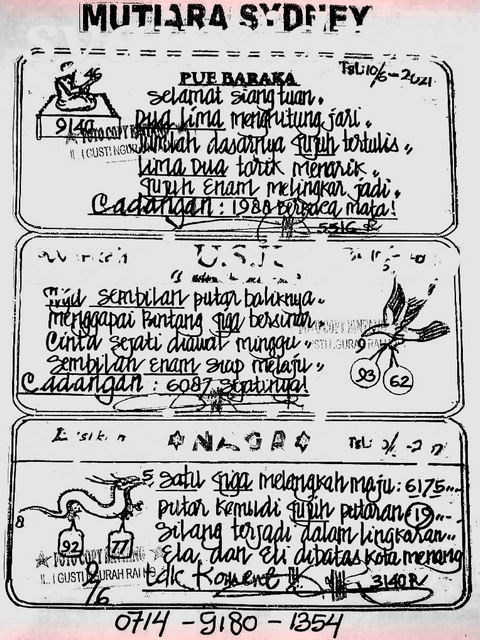 MUTIARA SYDNEY
PUE BARAKA
46
9140
Selamat siang tuan.
Dua lima menghitung jari.
Jumlah dasarnya tujuh tertulis..
Lima Dua tarik menarik.
Tujuh Enam melingkar jadi.
Cadangan: 1988 Berkaca mata!
5516 R
FOTO COPY BINTANG
U.S.K
Sembilan putar baliknya..
menggapai Bintang tiga bersinar..
Cinta sejati diawal minggu..
Sembilan Enam siap melaju..
Cadangan: 6087
9
93
62
NAGA
5
8
92
77
Satu tiga melangkah maju: 6175...
putar kemudi tujuh putaran 19...
Silang terjadi dalam lingkaran..
Ela, dan Eli dibatas kota menang
tdk Konsent
3140 R
FOTO COPY BINTANG
JL. I GUSTI NGURAH RAI
8/6
0714 - 9180 - 1354